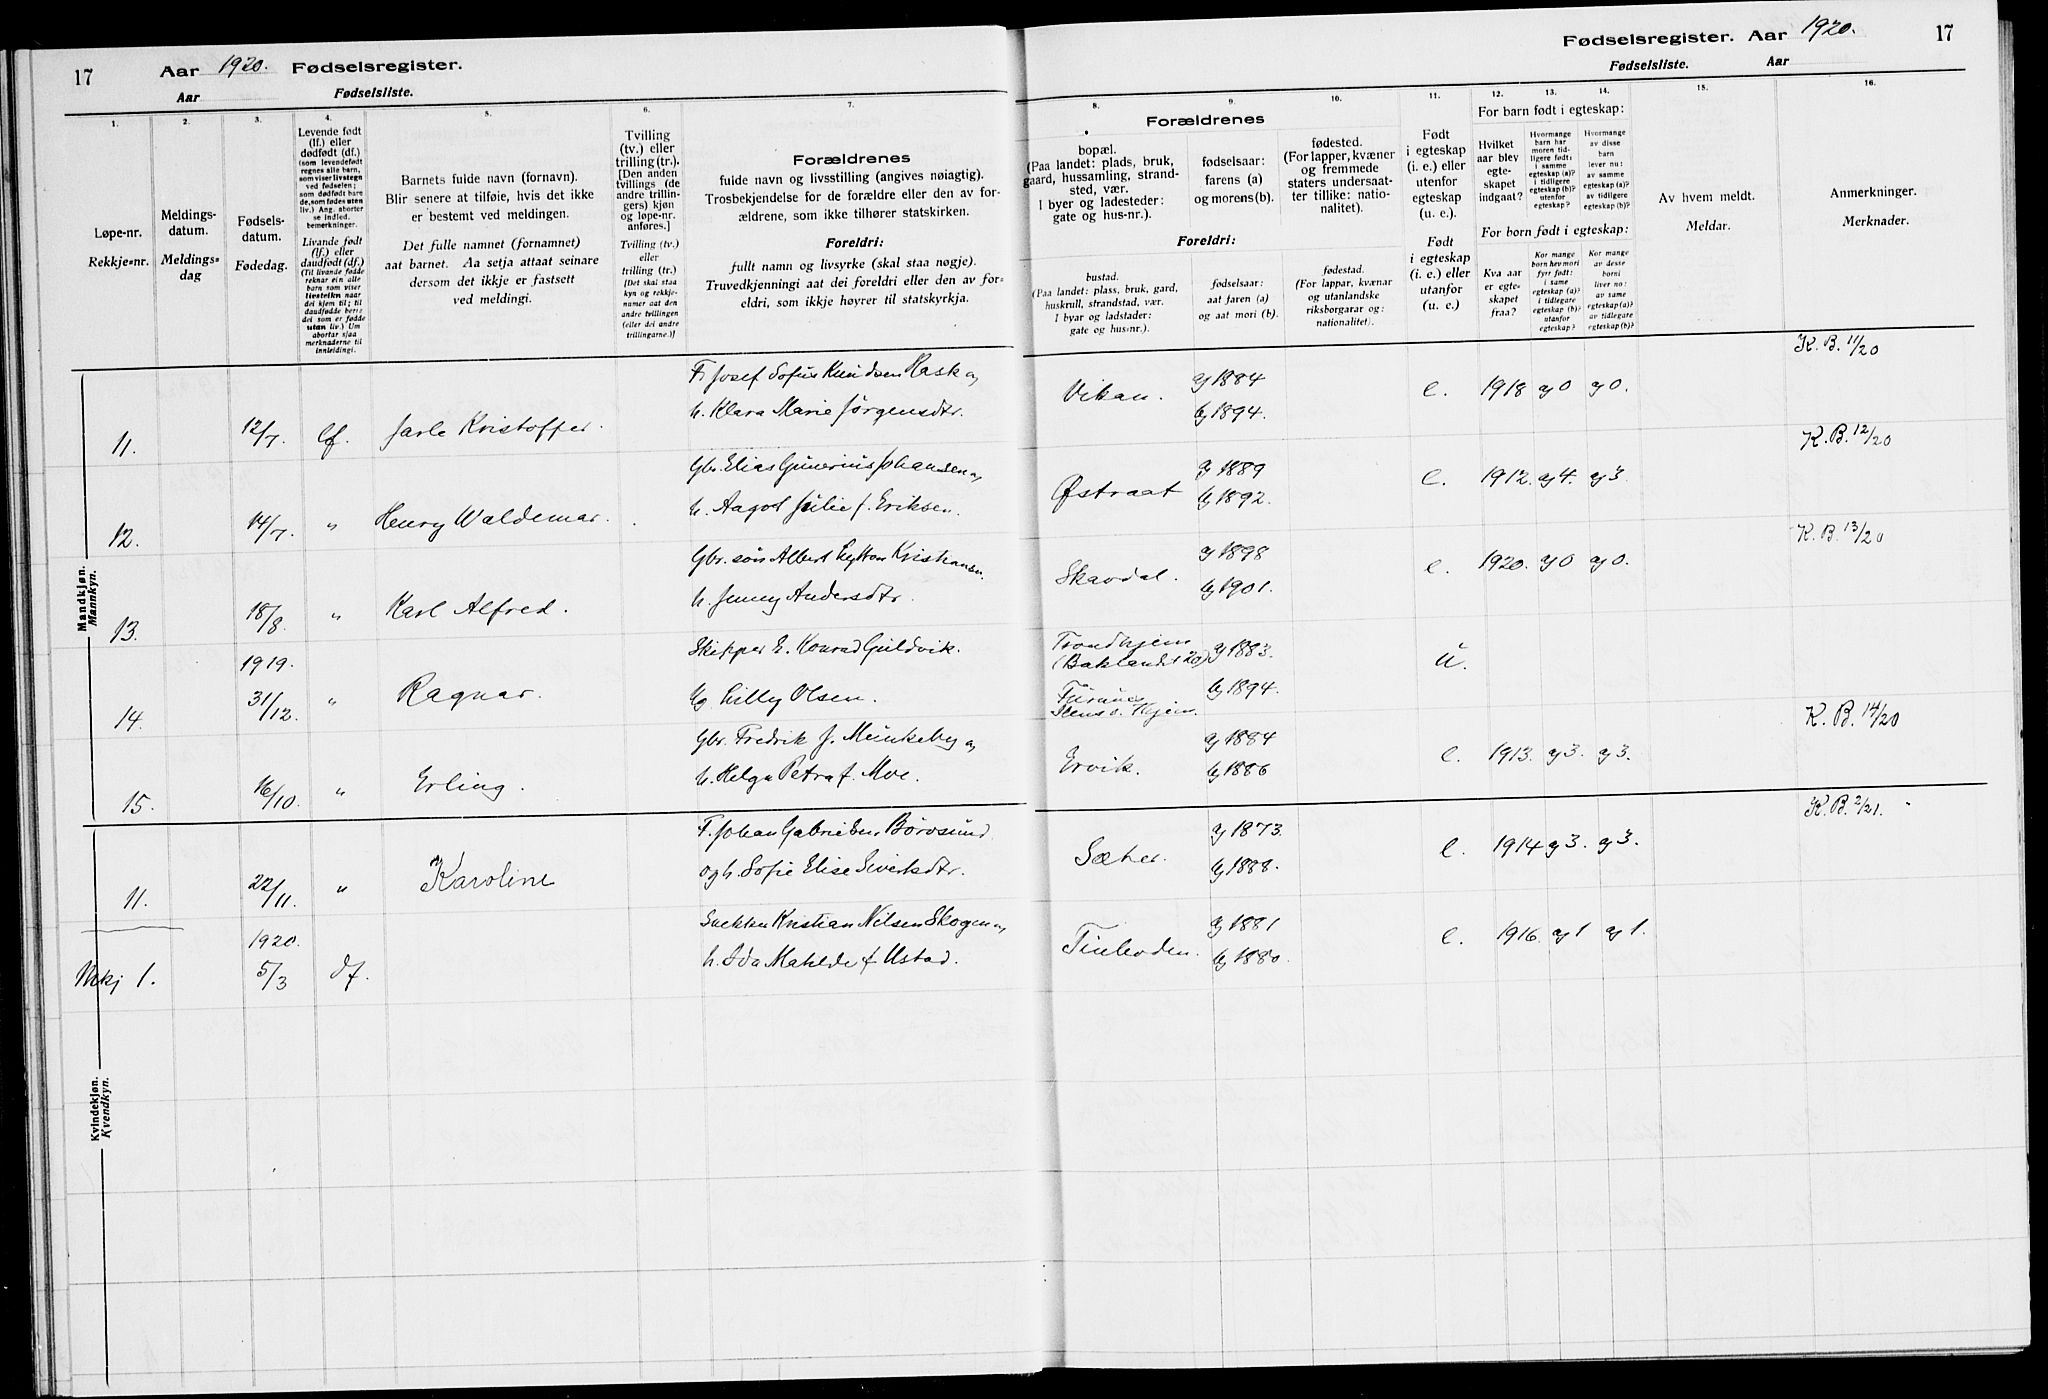 17
Aar 1920. Fødselsregister.
Aar Fødselsliste.
Fødselsregister. Aar 1920.
17
Fødselsliste. Aar
1.
Løpe-nr.
Rekkje=nr.
2.
Meldings-
datum.
Meldings=
dag
3.
Fødsels-
datum.
Fødedag.
4.
Levende født
(lf.) eller
dødfødt (df.)
(som levendefødt
regnes alle barn,
som viser livstegn
ved fødselen;
som dødfødt bare
de, som fødes uten
liv.) Ang. aborter
se indled.
bemerkninger.
Livande født
(lf.) eller
daudfødt (df.)
(Til livande fødde
reknar ein alle
barn som viser
livsteikn naar
dei kjem til; til
daudfødde berre
dei som er fødde
utan liv.) Um
abortar sjaa
merknaderne til
innleidingi.
5.
Barnets fulde navn (fornavn).
Blir senere at tilføie, hvis det ikke
er bestemt ved meldingen.
Det fulle namnet (fornamnet)
aat barnet. Aa setja attaat seinare
dersom det ikkje er fastsett
ved meldingi.
6.
Tvilling
(tv.) eller
trilling (tr.).
[Den anden
tvillings (de
andre trillin-
gers) kjøn
og løpe-nr.
anføres.]
Tvilling (tv.)
eller
trilling (tr.)
[Det skal staa
kyn og rekkje-
numer aat den
andre tvillingen
(eller dei andre
trillingarne.)]
7.
Forældrenes
fulde navn og livsstilling (angives nøiagtig).
Trosbekjendelse for de forældre eller den av for-
ældrene, som ikke tilhører statskirken.
Foreldri:
fullt namn og livsyrke (skal staa nøgje).
Truvedkjenningi aat dei foreldri eller den av for=
eldri, som ikkje høyrer til statskyrkja.
Forældrenes
8.
bopæl.
(Paa landet: plads, bruk,
gaard, hussamling, strand-
sted, vær.
I byer og ladesteder:
gate og hus-nr.).
9.
fødselsaar:
farens (a)
og morens (b).
10.
fødested.
(For lapper, kvæner
og fremmede
staters undersaat-
ter tillike: natio-
nalitet).
Foreldri:
bustad.
(Paa landet: plass, bruk, gard,
huskrull, strandstad, vær.
I byar og ladstader:
gate og hus=nr.).
fødselsaar:
aat faren (a)
og aat mori (b).
fødestad.
(For lappar, kvænar
og utanlandske
riksborgarar og:
nationalitet).
11.
Født
i egteskap
(i. e.) eller
utenfor
egteskap
(u. e.).
Født
i egteskap
(i. e.) eller
utanfor
(u. e.)
12. 13. 14.
For barn født i egteskap:
Hvilket
aar blev
egte-
skapet
indgaat?
Hvormange
barn har
moren tid-
ligere født:
i samme
egteskap (a)?
i tidligere
egteskap (b)?
utenfor
egteskap?
Hvormange
av disse
barn
lever nu:
av samme
egteskap (a)?
av tidligere
egteskap (b)?
For born født i egteskap:
Kva aar
er egte-
skapet
fraa?
Kor mange
born hev mori
fyrr født:
i same
egteskap (a)?
i tidlegare
egteskap (b)?
utanfor
egteskap?
Kor mange
av desse
borni
liver no:
av same
egteskap (a)?
av tidlegare
egteskap (b)?
15.
Av hvem meldt.
Meldar.
16.
Anmerkninger.
Merknader.
Mandkjøn.
Mannkyn.
11. 12/7. lf. Jarle Kristoffer. F. Josef Sofus Knudsen Rask og
h. Klara Marie Jørgensdtr. Vikan. a) 1884 b) 1894. e. 1918 a) 0 a) 0. K. B. 11/20
12. 14/7. " Henry Waldemar. Gbr. Elias Gunerius Johansen og
h. Aagot Julie f. Eriksen. Østraat a) 1889 b) 1892. e. 1912. a) 4. a) 3. K. B. 12/20
13. 18/8. " Karl Alfred. Gbr. søn Albert Kristiansen.
h. Jenny Andersdtr. Skavdal. a) 1898 b) 1901. e. 1920. a) 0 a) 0. K. B. 13/20
14. 1919. 31/12. " Ragnar. Skipper E. Konrad Guldvik.
Ug Lilly Olsen. Trondhjem (Baklandet 20) a) 1883. b) 1894. u.
15. 16/10. " Erling. Gbr. Fredrik J. Munkeby og
h. Helga Petra f. Moe. Ervik. a) 1884 b) 1886 e. 1913. a) 3. a) 3. K. B. 14/20
Kvindekjøn.
Kvendkyn.
11. 22/11. " Karoline F. Johan Gabrielsen Børøsund
og h. Sofie Elise Sivertsdtr. Sæter. a) 1873. b) 1888. e. 1914 a) 3. a) 3. K. B. 2/21.
Mkj 1. 1920. 5/3 df. Kristian Nilsen Skogen og
h. Ida Matilde f Ustad. a) 1881 b) 1880. e. 1916. a) 1 a) 1.